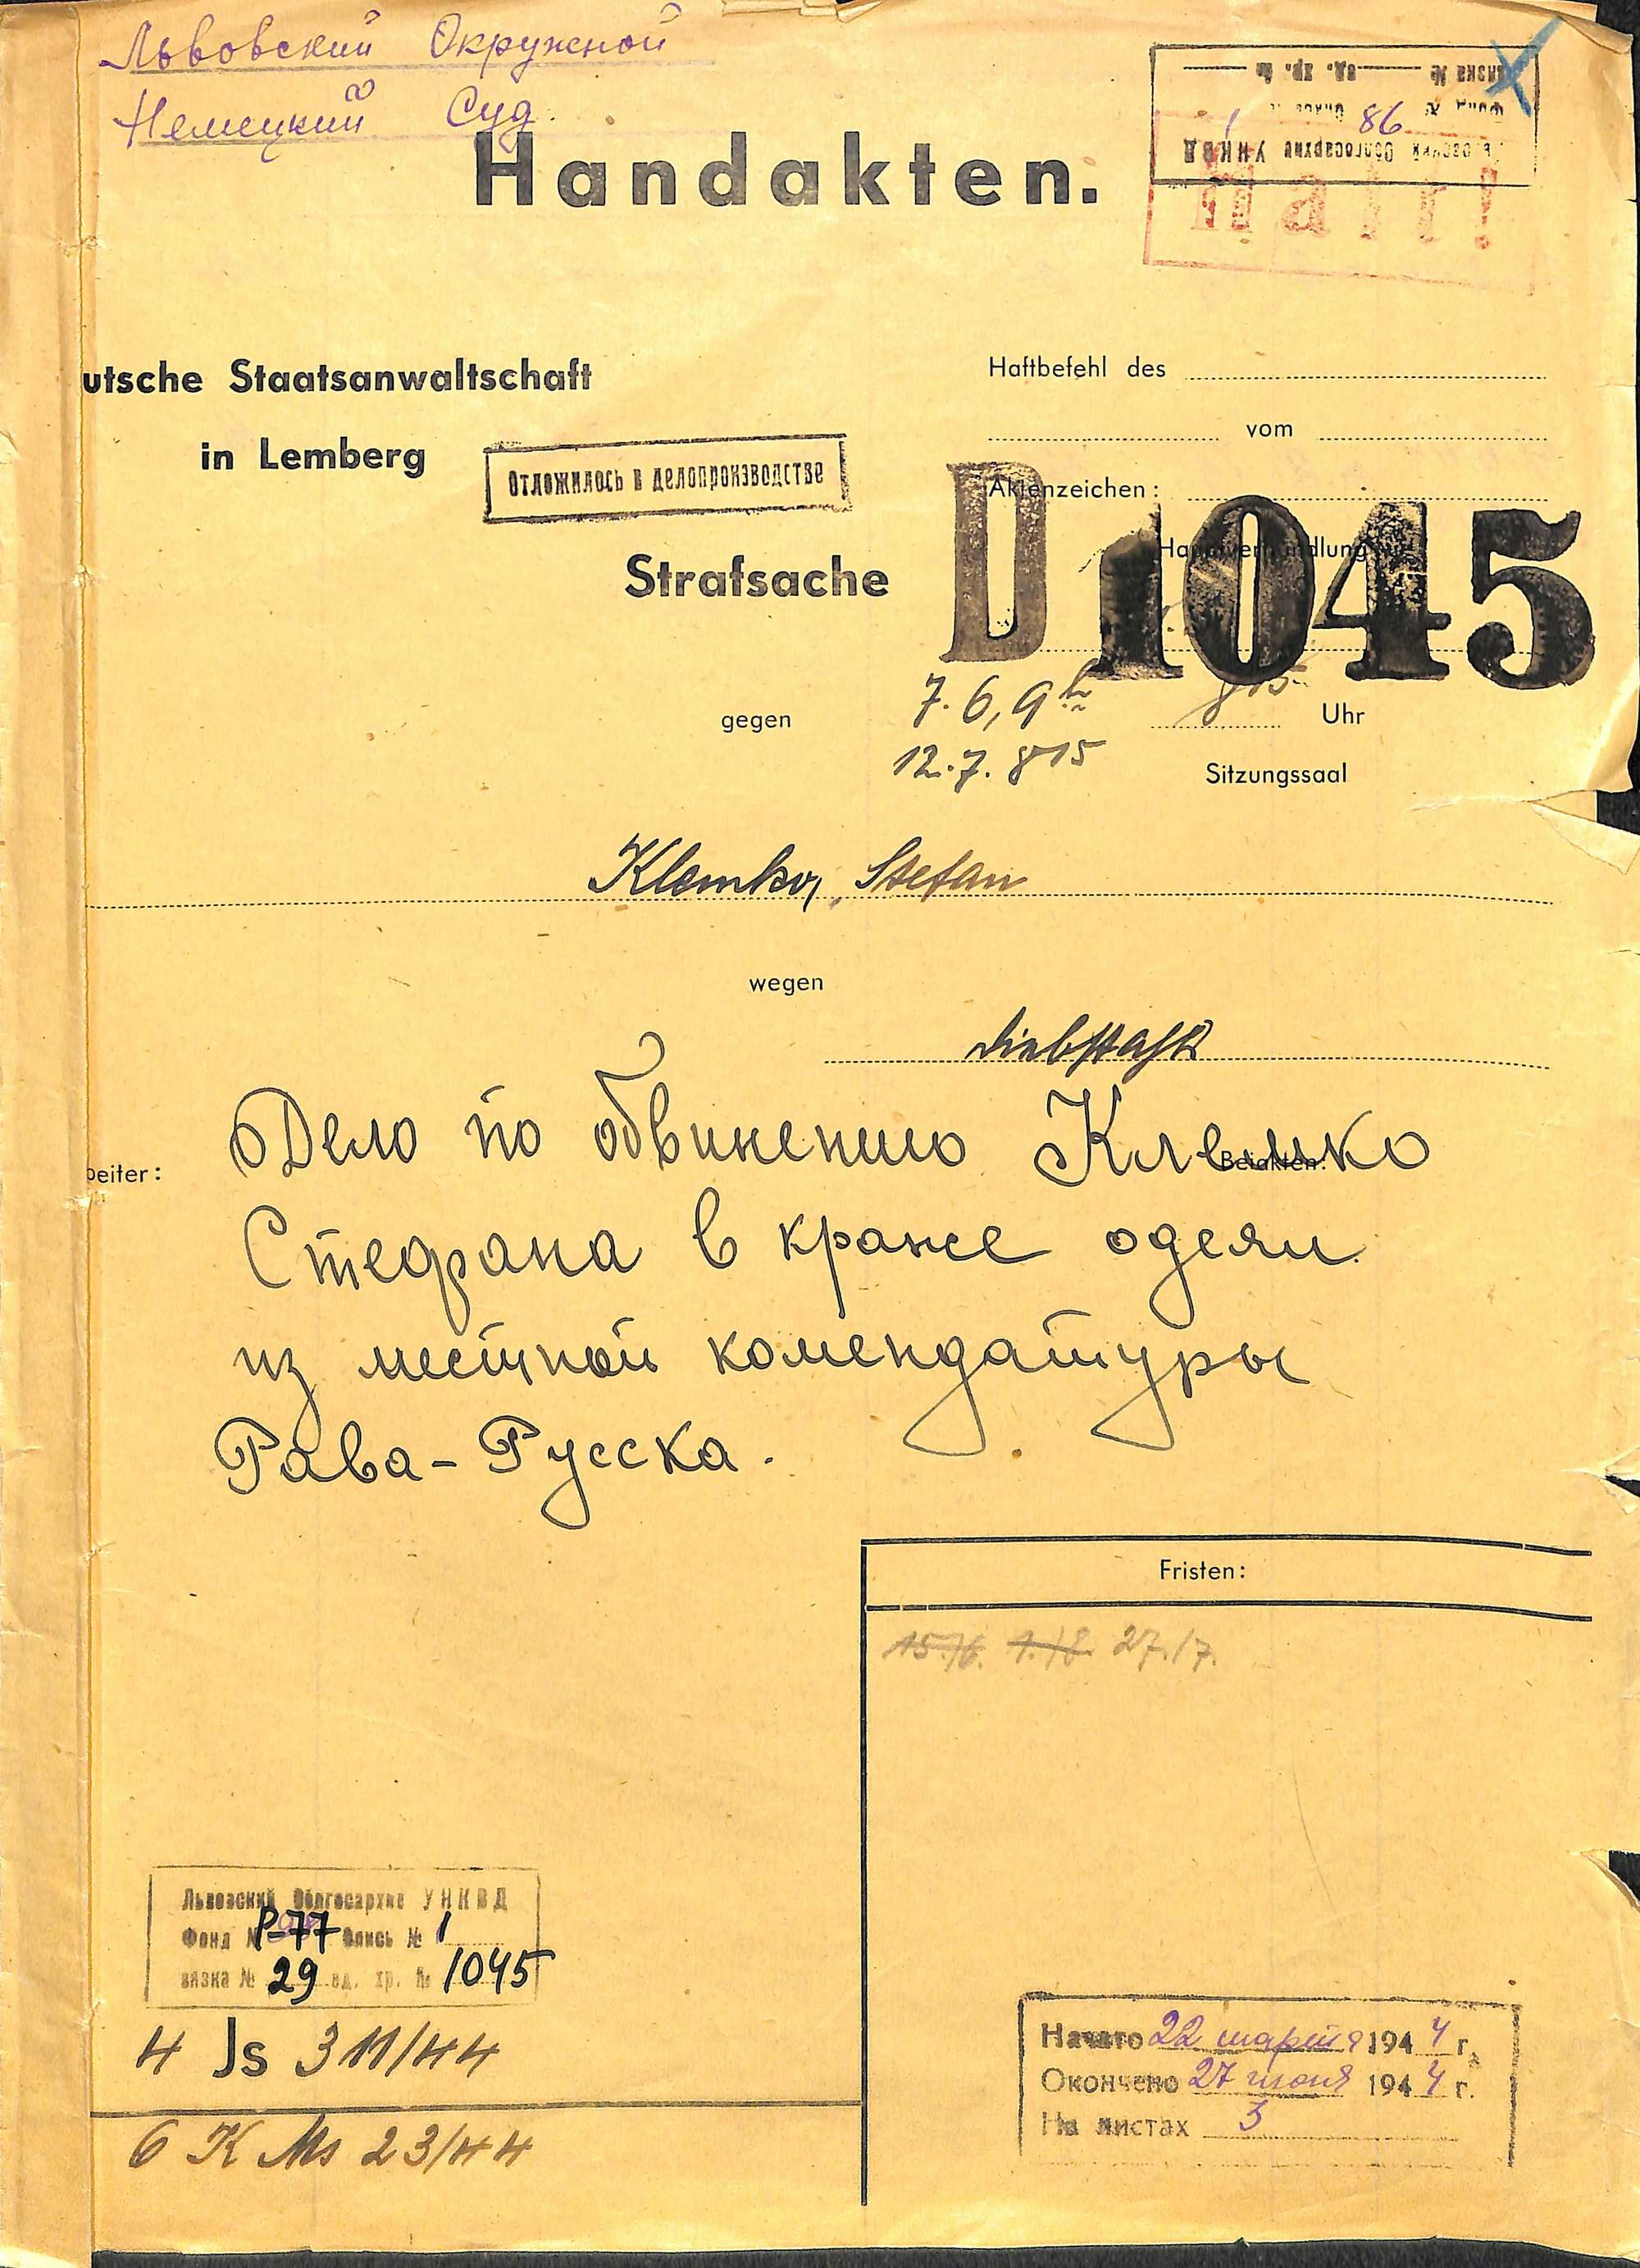 Львовский Окружной
Немецкий Суд.
Handakten.
Львовский Облгосархив УНКВД
Фонд № 86 Опись № 1
вязка № ед. хр. №
Haft!
utsche Staatsanwaltschaft
in Lemberg
Отложилось в делопроизводстве
Haftbefehl des
vom
Aktenzeichen:
D 1045
Hauptverhandlung
Strafsache
gegen
7. 6, 9 h
815 Uhr
12. 7. 815
Sitzungssaal
Klemko, Stefan
wegen
Diebstahl
beiter:
Beiakten:
Дело по обвинению Клемко
Стефана в краже одеял
из местной комендатуры
Рава-Русска.
Fristen:
15./6. 1./7. 27./7.
Львовский Облгосархив УНКВД
Фонд № Р-77 Опись № 1
вязка № 29 ед. хр. № 1045
4 Js 311/44
6 K Ms 23/44
Начато 22 марта 1944 г.
Окончено 27 июня 1944 г.
На листах 3